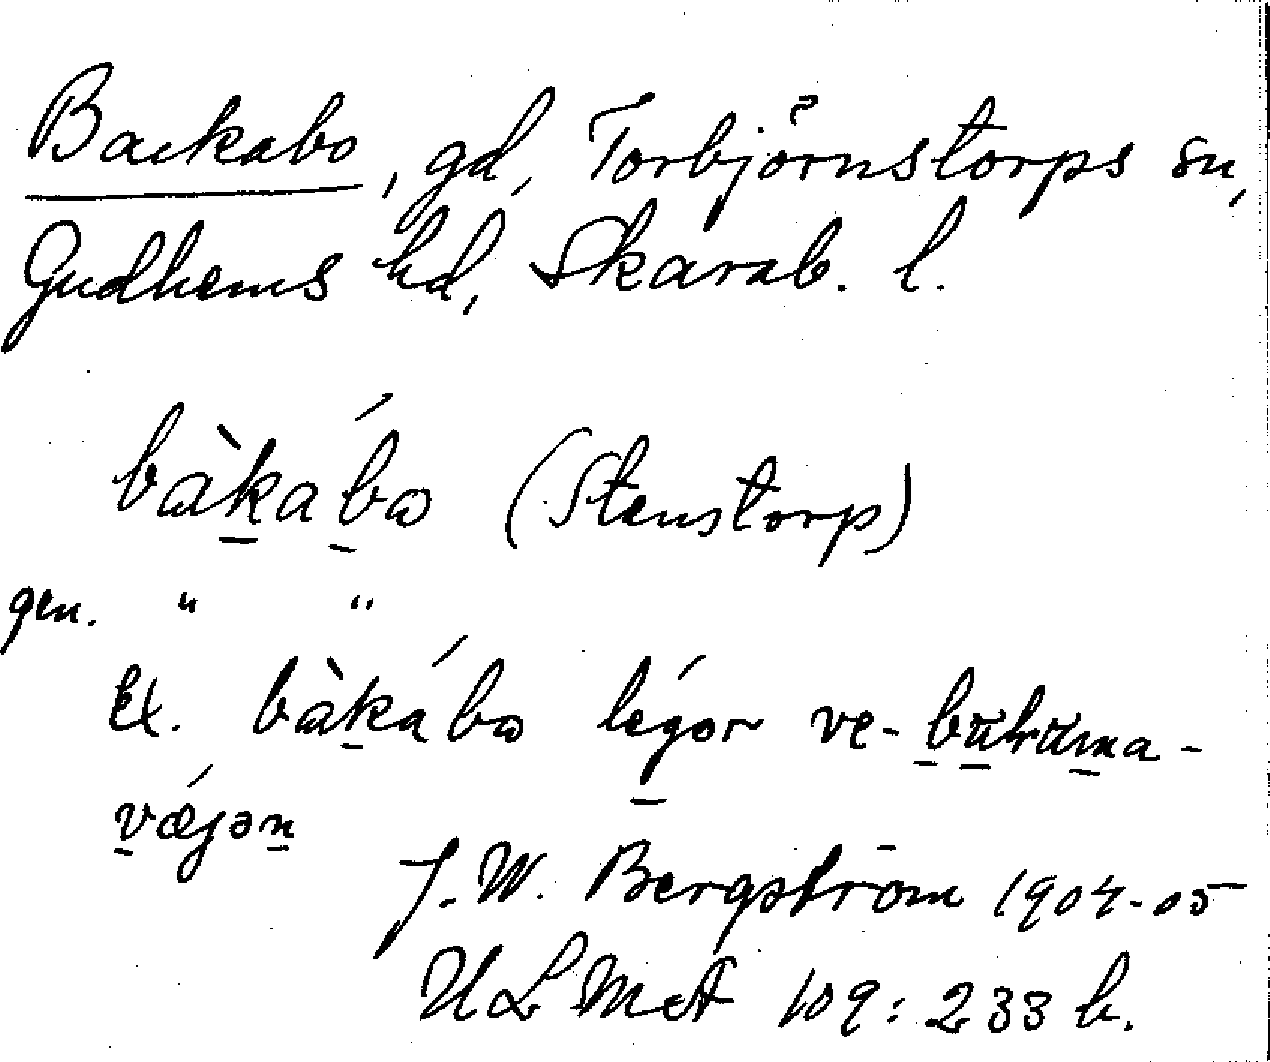 Backabo, gd, Torbjörnstorps sn,
Gudhems hd, Skarab. l.
bàkábo (Stenstorp)
gen. " "
Ex. bàkábo légor ve-
vǽjən
J. W. Bergström 1904-05
ULMA 109: 233 b.